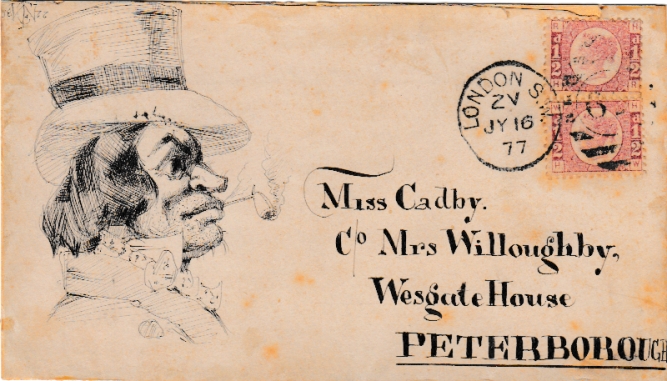 LONDON S.W
ZV
JY 16
77
Miss Cadby.
C/o Mrs Willoughby,
Wesgate House
PETERBOROUGH